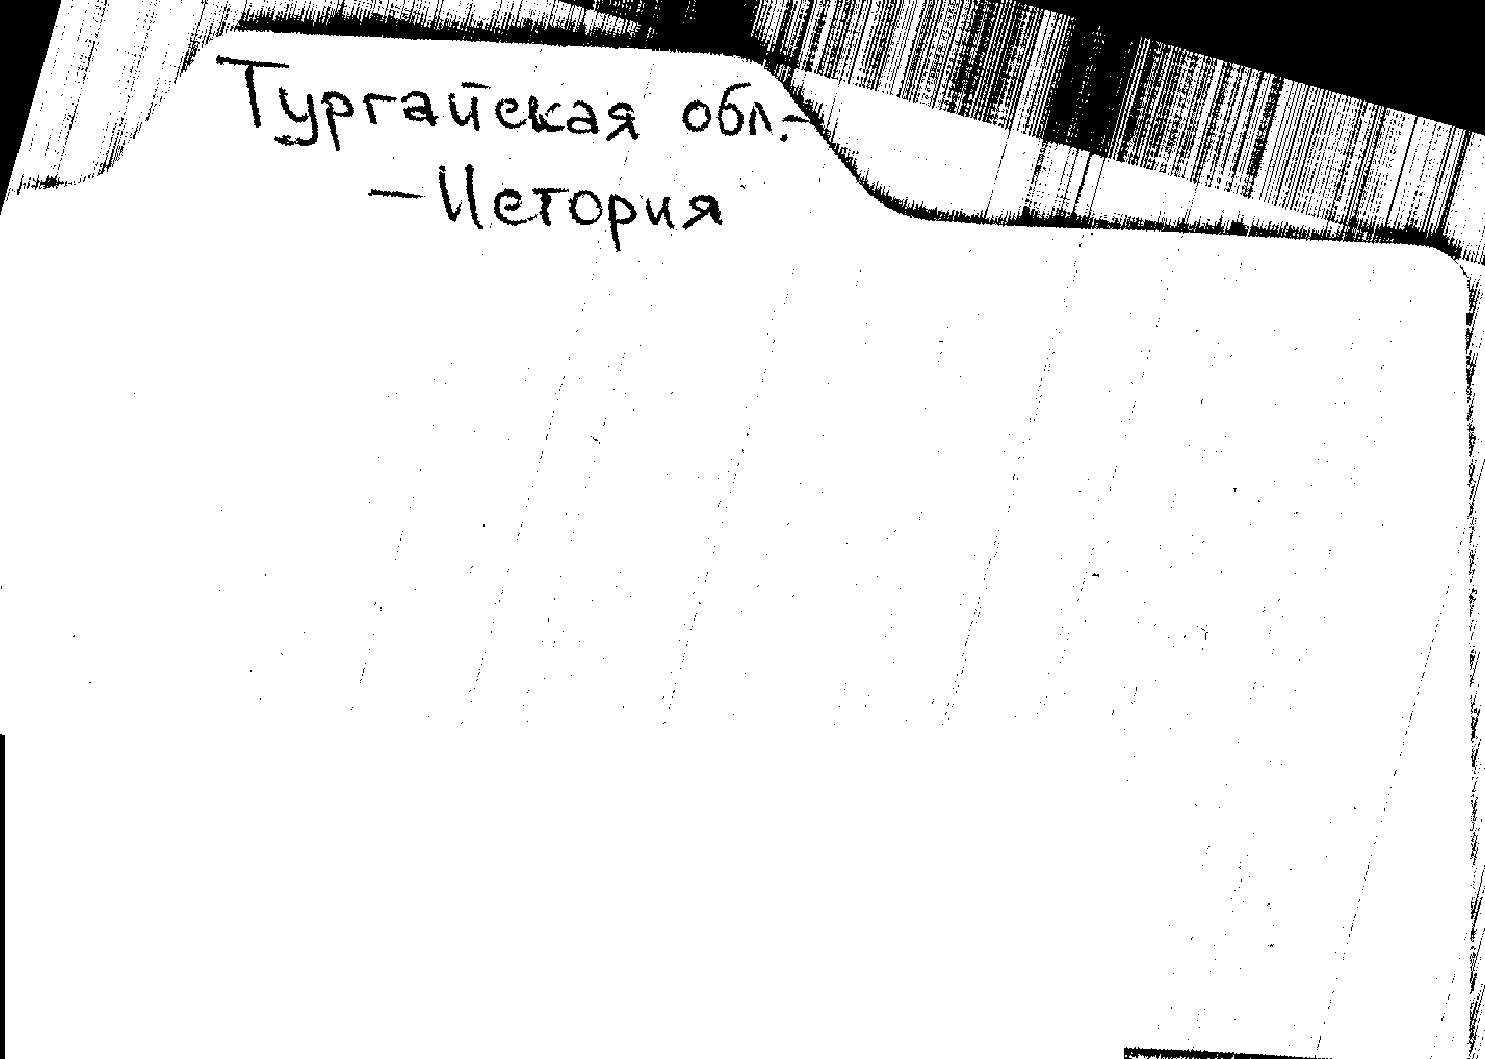 Тургайская обл.-
-История